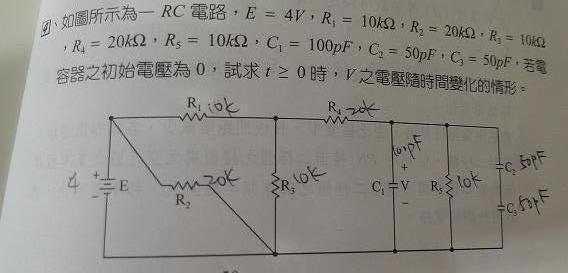 四、如圖所示為一 RC 電路，E = 4V，R₁ = 10kΩ，R₂ = 20kΩ，R₃ = 10kΩ
，R₄ = 20kΩ，R₅ = 10kΩ，C₁ = 100pF，C₂ = 50pF，C₃ = 50pF，若電
容器之初始電壓為 0，試求 t ≥ 0 時，V 之電壓隨時間變化的情形。
R₁ 10k R₄ 20k
100pF
4 + E − R₂ 20k R₃ 10k C₁ + V − R₅ 10k C₂ 50pF
C₃ 50pF